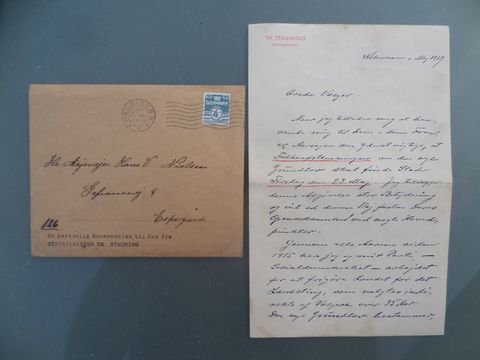 DANMARK
Hr. Mejeriejer Hans V. Nielsen
Espergærde
En personlig Henvendelse til Dem fra
STATSMINISTER TH. STAUNING
TH. STAUNING
Statsminister
København, Maj 1939.
Ærede Vælger.
Naar jeg tillader mig at hen-
vende mig til Dem i denne Form,
er Aarsagen den
Folkeafstemningen om den nye
Grundlov skal finde Sted
Tirsdag den 23. Maj. Jeg tillægger
denne Afgørelse stor Betydning
og vil
Opmærksomhed ved nogle Hoved-
punkter.
Gennem alle Aarene siden
1915 har jeg og mit Parti -
Socialdemokratiet - arbejdet
for at frigøre Landet for det
Landsting, som valgtes indi-
rekte af Vælgere over 35 Aar.
Den nye Grundlov bestemmer,